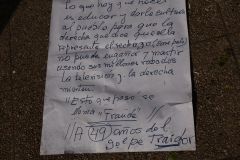 Lo que hay que hacer
es educar y darle cultura
al pueblo para que la
derecha que dice que ella
representa el rechazo
no pueda engañar y mentir
usando sus millones robados
La television y la derecha
mienten
"Esto que paso se
llama "Fraude"
// A (49) años del
golpe Traidor